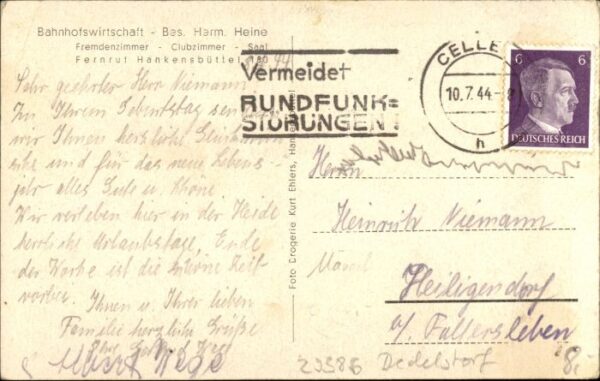 Bahnhofswirtschaft - Bes. Herm. Heine
Fremdenzimmer - Clubzimmer - Saal
Fernruf Hankensbüttel
Sehr geehrter Herr Niemann!
Zu Ihrem Geburtstag senden
wir Ihnen herzliche Glückwün
sche und für das neue Lebens-
jahr alles Gute u. Schöne
Wir verleben hier in der Heide
herrliche Urlaubstage, Ende
der Woche ist die schöne Zeit
vorbei.
Ihnen u. Ihrer lieben
Familie herzliche Grüße
Albert
Foto Drogerie Kurt Ehlers,
Vermeidet
RUNDFUNK=
STÖRUNGEN!
CELLE
10.7.44
h
6 6
DEUTSCHES REICH
Herrn
Heinrich Niemann
Heiligendorf
a/ Fallersleben
Dedelstorf
8,-